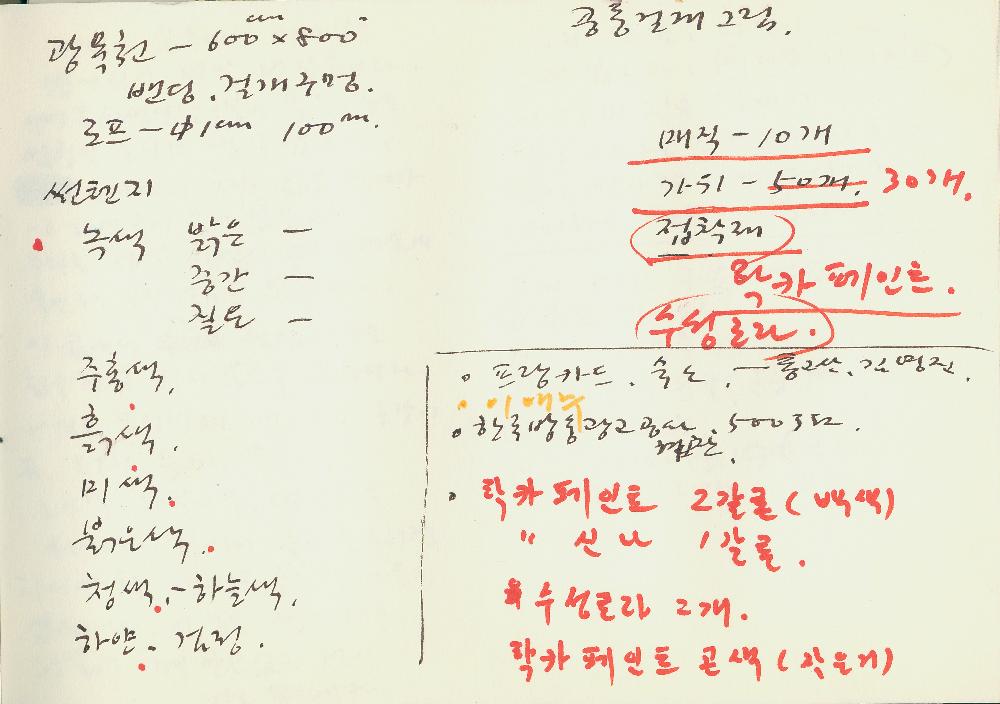 공동걸개그림.
광목천 - 600cm × 800
밴딩. 걸개구멍.
로프 - Φ1cm 100m.
썬텐지
녹색 밝은 -
중간 -
질은 -
주홍색.
흙색.
미색.
붉은색.
청색. - 하늘색.
하얀. 검정.
매직 - 10개
가위 - 50개. 30개.
접착제
락카페인트.
수성로라.
프랑카드. 숙소. -
이애주
한국방송광고공사. 500
락카페인트 2갈론 (백색)
" 신나 1갈론.
수성로라 2개.
락카페인트 곤색 (작은거)